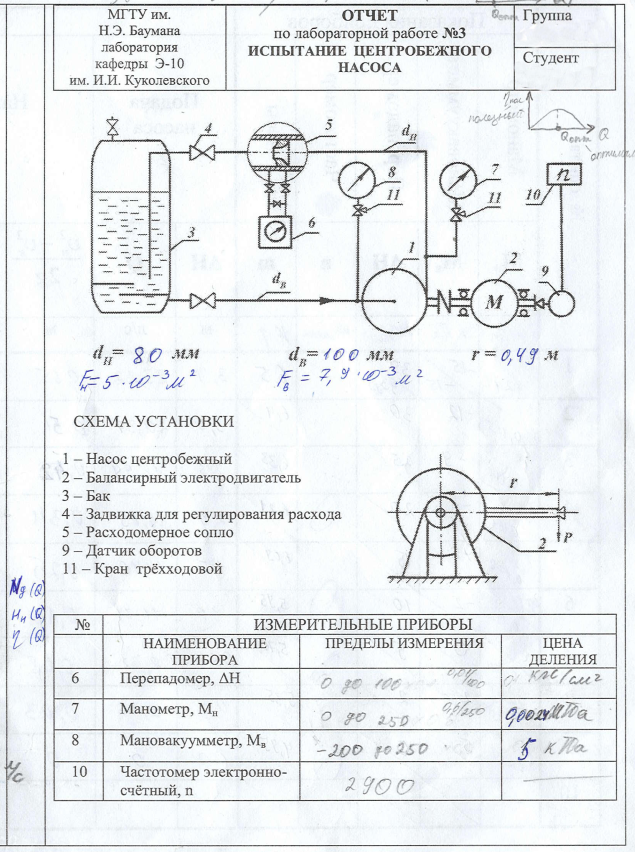 МГТУ им.
Н.Э. Баумана
лаборатория
кафедры Э-10
им. И.И. Куколевского
ОТЧЕТ
по лабораторной работе №3
ИСПЫТАНИЕ ЦЕНТРОБЕЖНОГО
НАСОСА
Группа
Студент
Q
4
5
dН
8
7
n
11
11
10
6
3
1
2
9
M
dВ
dН= 80 мм
dВ= 100 мм
r = 0,49 м
FН= 5·10⁻³ м²
FВ = 7,9·10⁻³ м²
СХЕМА УСТАНОВКИ
1 – Насос центробежный
2 – Балансирный электродвигатель
3 – Бак
4 – Задвижка для регулирования расхода
5 – Расходомерное сопло
9 – Датчик оборотов
11 – Кран трёхходовой
r
2
P
Nд (Q)
Hн (Q)
η (Q)
№
ИЗМЕРИТЕЛЬНЫЕ ПРИБОРЫ
НАИМЕНОВАНИЕ ПРИБОРА
ПРЕДЕЛЫ ИЗМЕРЕНИЯ
ЦЕНА ДЕЛЕНИЯ
6 Перепадомер, ΔН 0 до 100 кгс/см²
7 Манометр, Мн 0 до 250 0,6/250 МПа
8 Мановакуумметр, Мв -200 до 250 5 кПа
10 Частотомер электронно-
счётный, n 2900